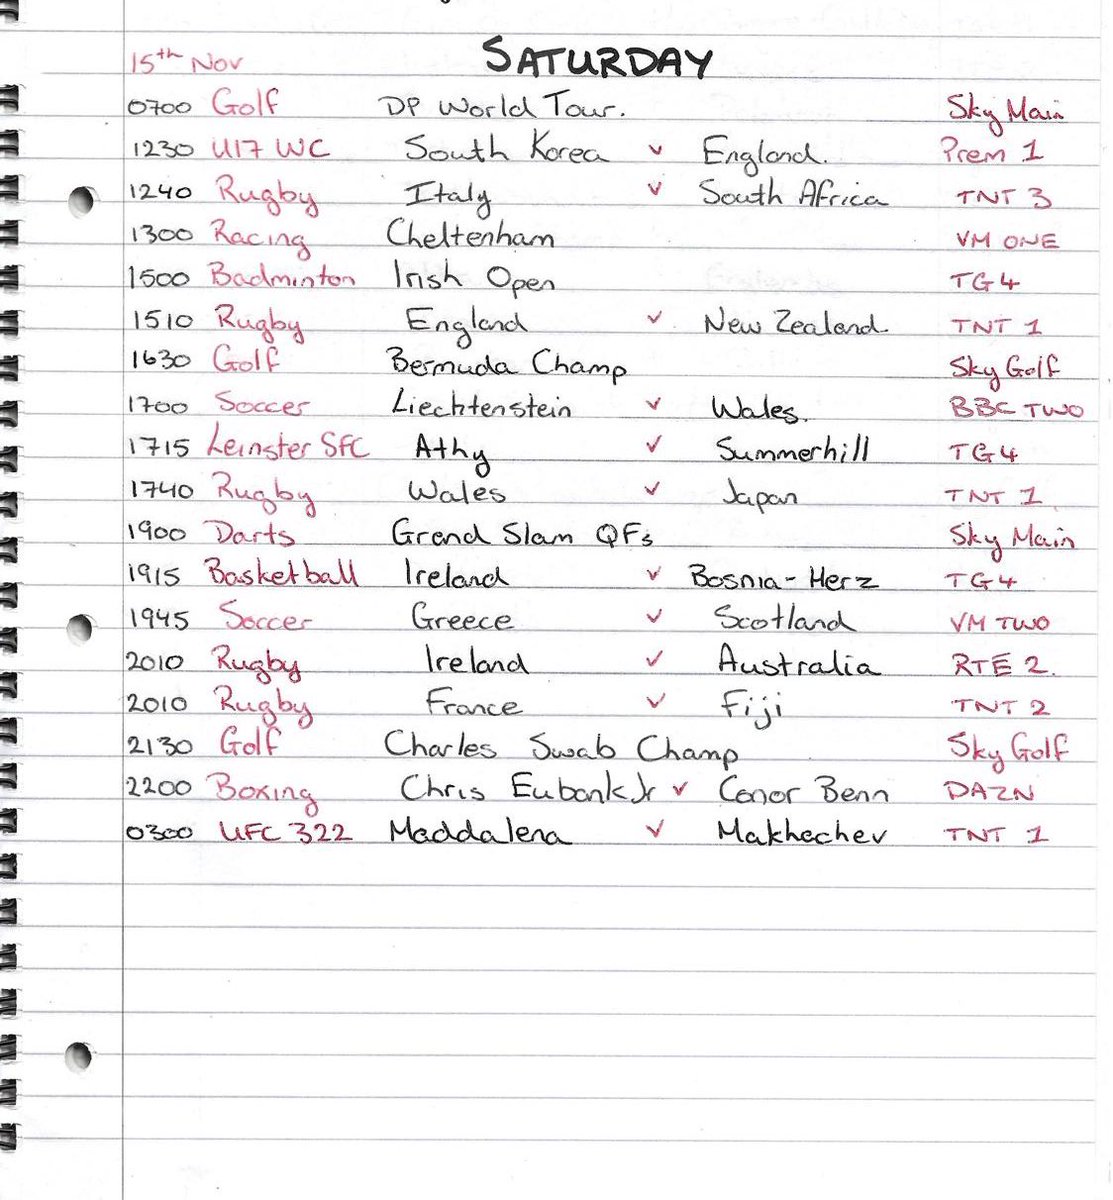 SATURDAY
15th Nov
0700 Golf DP World Tour. Sky Main
1230 U17 WC South Korea v England. Prem 1
1240 Rugby Italy v South Africa TNT 3
1300 Racing Cheltenham VM ONE
1500 Badminton Irish Open TG4
1510 Rugby England v New Zealand. TNT 1
1630 Golf Bermuda Champ Sky Golf
1700 Soccer Liechtenstein v Wales. BBC TWO
1715 Leinster SFC Athy v Summerhill TG4
1740 Rugby Wales v Japan TNT 1
1900 Darts Grand Slam QFs Sky Main
1915 Basketball Ireland v Bosnia-Herz TG4
1945 Soccer Greece v Scotland VM TWO
2010 Rugby Ireland v Australia RTE 2.
2010 Rugby France v Fiji TNT 2
2130 Golf Charles Swab Champ Sky Golf
2200 Boxing Chris Eubank Jr v Conor Benn DAZN
0300 UFC 322 Maddalena v Makhechev TNT 1